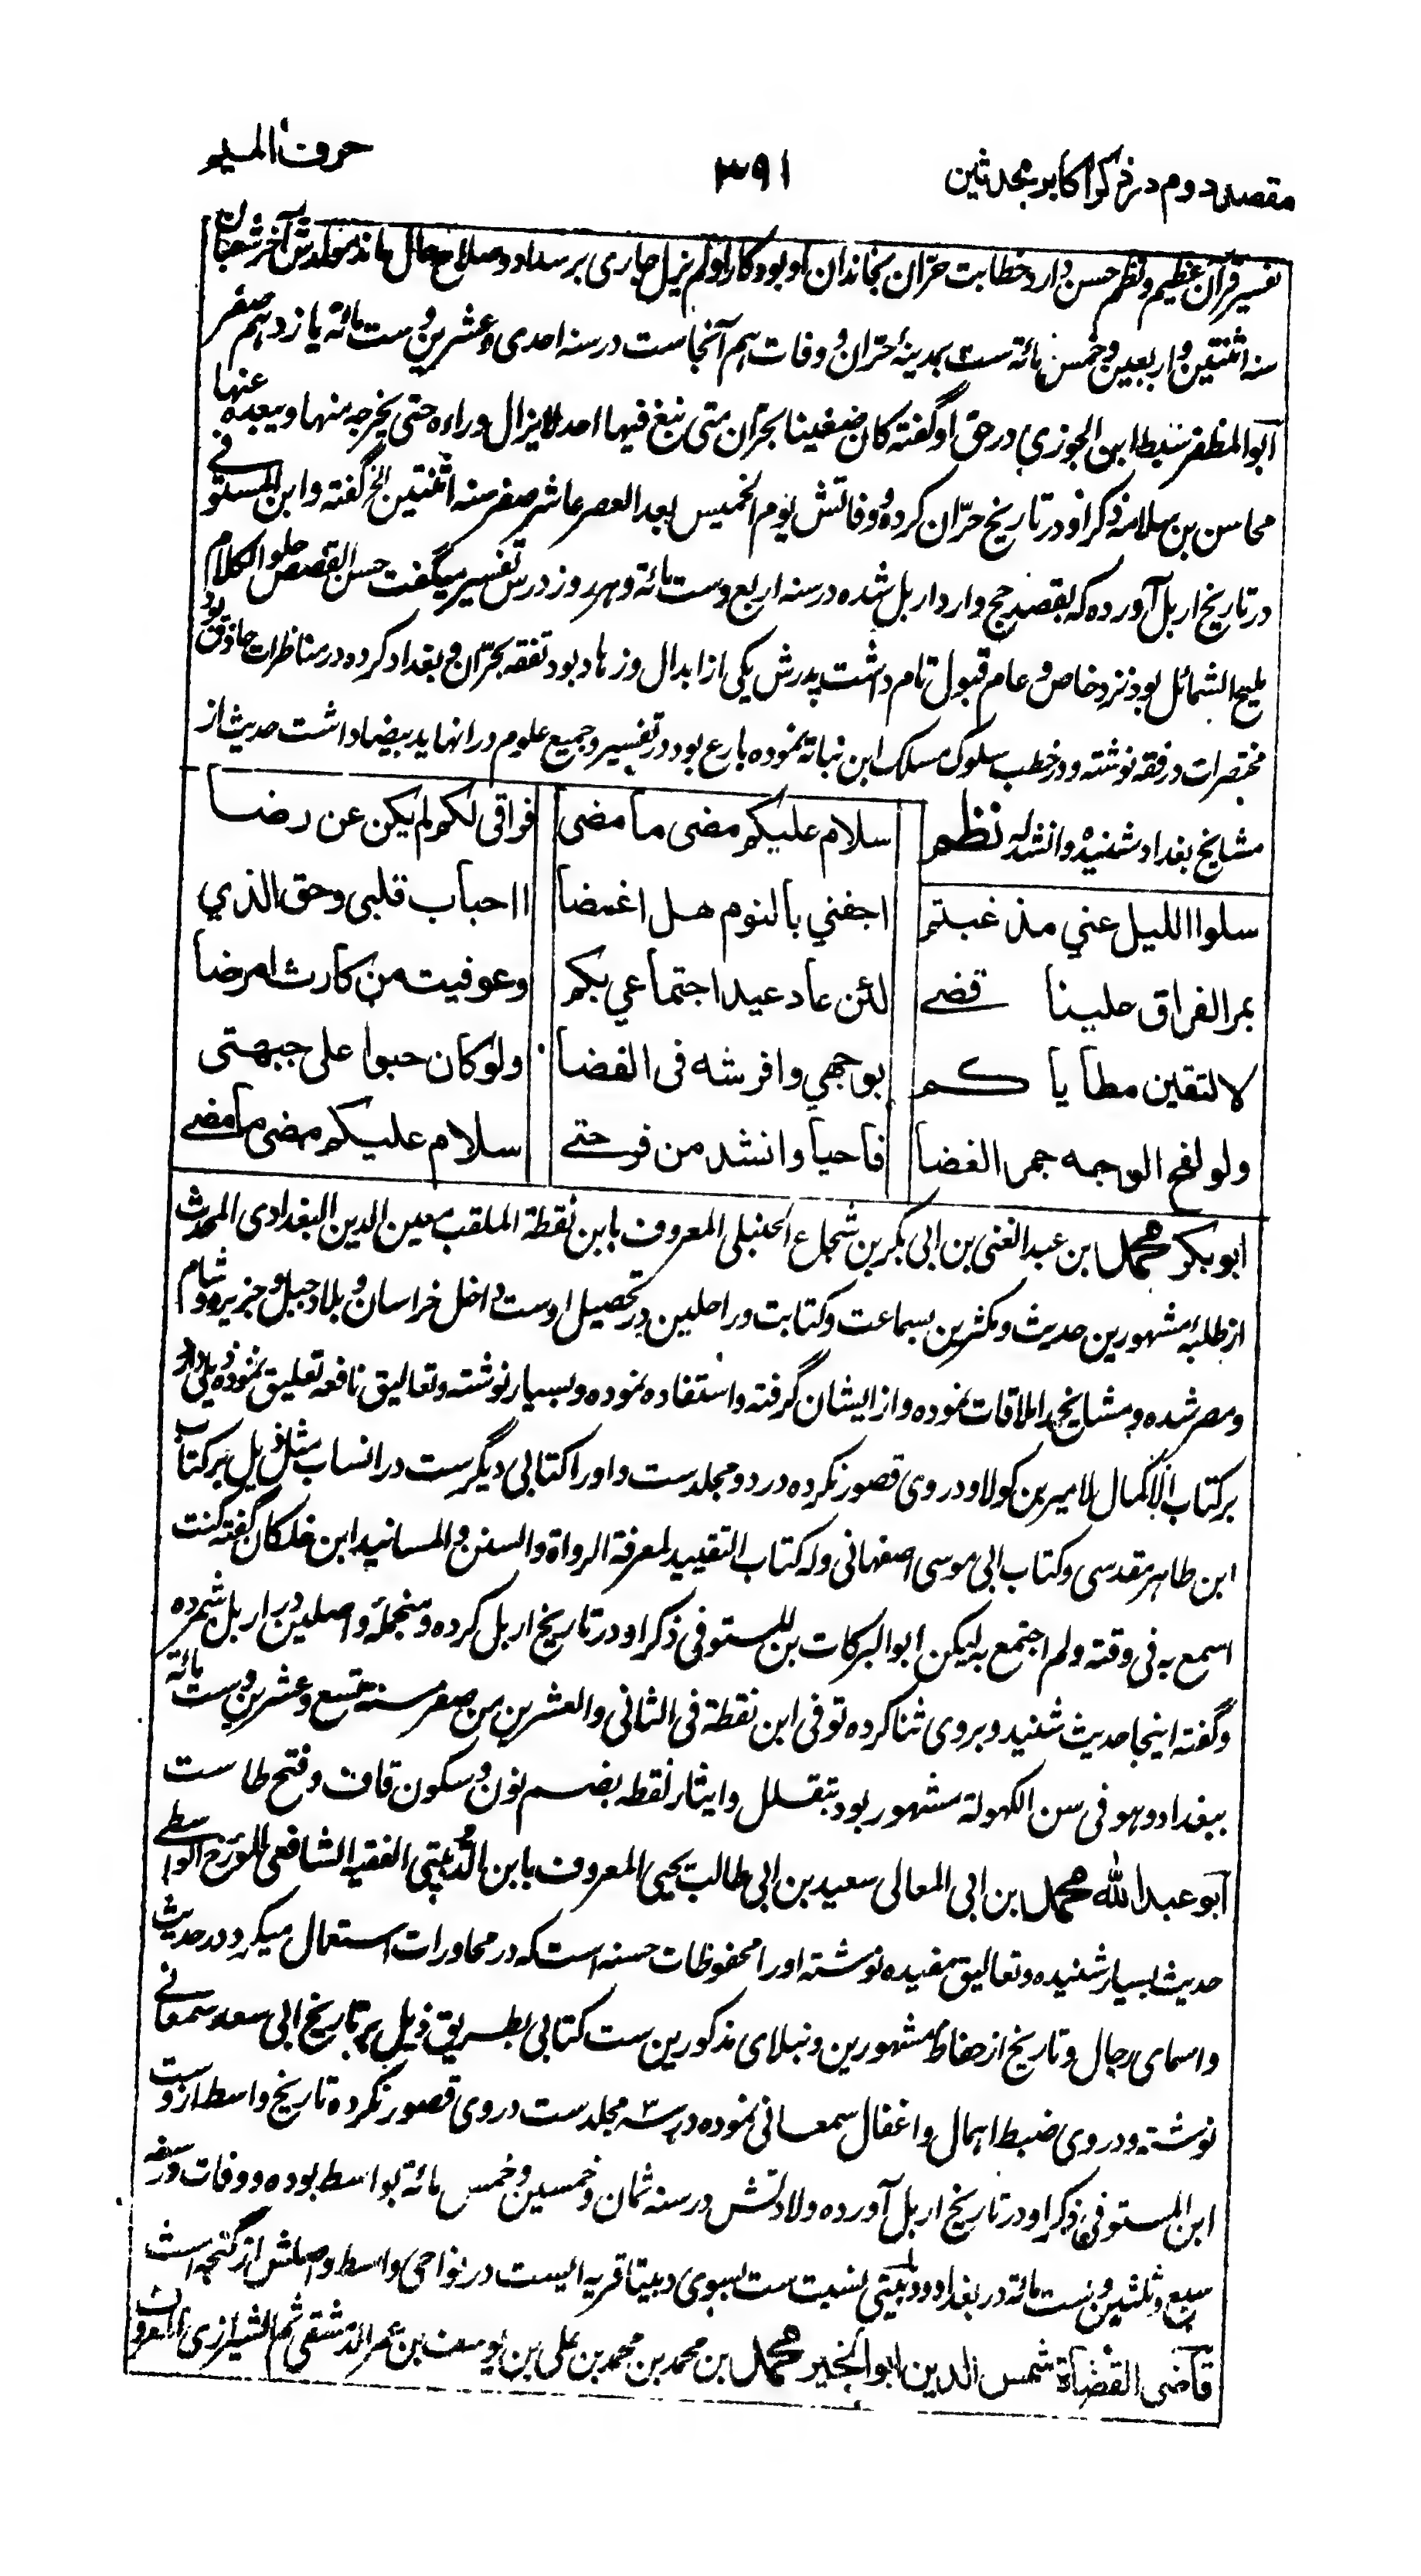 مقصد دوم در ذکر اکابر محدثین
۳۹۱
حرف المیم
تفسیر قرآن عظیم و نظم حسن دارد خطابت حرّان بخاندان او بود و کار او لم یزل جاری بر سداد و صلاح حال ماند مولدش آخر شعبان
سنه اثنتین و اربعین و خمس مائة ست بمدینهٔ حرّان و وفات هم آنجاست در سنه احدی و عشرین و ست مائة یازدهم صفر
ابو المظفر سبط ابن الجوزی در حق او گفته کان ضنینا بحرّان متی نبغ فیها احد لا یزال وراءه حتی یخرجه منها و یبعده عنها
محاسن بن سلامه ذکر او در تاریخ حرّان کرده و وفاتش یوم الخمیس بعد العصر عاشر صفر سنه اثنتین الخ گفته و ابن المستوفی
در تاریخ اربل آورده که بقصد حج وارد اربل شده در سنه اربع و ست مائة و هر روز درس تفسیر میگفت حسن القصص حلو الکلام
ملیح الشمائل بود نزد خاص و عام قبول تام داشت پدرش یکی از ابدال و زهاد بود تفقه بحرّان و بغداد کرده در مناظرات حاذق بود
مختصرات در فقه نوشته و در خطب سلوک مسلک ابن نباتة نموده بارع بود در تفسیر و جمیع علوم در انها ید بیضا داشت حدیث از
مشایخ بغداد شنیده و انشد له نظم
سلام علیکم مضی ما مضی
فراقی لکم لم یکن عن رضا
سلوا اللیل عنی مذ غبتم
اجفنی بالنوم هل اغمضا
ااحباب قلبی و حق الذی
بمر الفراق علینا قضی
لئن عاد عید اجتماعی بکم
و عوفیت من کارث امرضا
لالتقین مطایاکم
بوجهی و افرشه فی الفضا
و لو کان حبوا علی جبهتی
و لو لفح الوجه جمر الغضا
فاحیا و انشد من فرحتی
سلام علیکم مضی ما مضی
ابوبکر محمد ابن عبد الغنی بن ابی بکر بن شجاع الحنبلی المعروف بابن نقطة الملقب معین الدین البغدادی المحدث
از طلبهٔ مشهورین حدیث و مکثرین بسماعت و کتابت و راحلین در تحصیل اوست داخل خراسان و بلاد جبل و جزیره و شام
و مصر شده و مشایخ را ملاقات نموده و از ایشان گرفته و استفاده نموده و بسیار نوشته و تعالیق نافعه تعلیق نموده ذیلی دارد
بر کتاب الاکمال لامیر بن کولا و در وی قصور نکرده در دو مجلد ست و او را کتابی دیگر ست در انساب مثل ذیل بر کتاب
ابن طاهر مقدسی و کتاب ابی موسی اصفهانی و له کتاب التقیید لمعرفة الرواة و السنن و المسانید ابن خلکان گفته کنت
اسمع به فی وقته و لم اجتمع به لیکن ابو البرکات بن المستوفی ذکر او در تاریخ اربل کرده و منجملهٔ واصلین در اربل شمرده
و گفته اینجا حدیث شنید و بر وی ثنا کرده توفی ابن نقطة فی الثانی و العشرین من صفر سنة تسع و عشرین و ست مائة
ببغداد و هو فی سن الکهولة مشهور بود بتقلل و ایثار نقطه بضم نون و سکون قاف و فتح طاست
ابو عبد الله محمد ابن ابی المعالی سعید بن ابی طالب یحیی المعروف بابن الدُّبَیثی الفقیه الشافعی المؤرخ الواسطی
حدیث بسیار شنیده و تعالیق مفیده نوشته او را محفوظات حسنه است که در محاورات استعمال میکرد و در حدیث
و اسمای رجال و تاریخ از حفاظ مشهورین و نبلای مذکورین ست کتابی بطریق ذیل بر تاریخ ابی سعد سمعانی
نوشته و در وی ضبط اهمال و اغفال سمعانی نموده در سه مجلد ست در وی قصور نکرده تاریخ واسط از وست
ابن المستوفی ذکر او در تاریخ اربل آورده ولادتش در سنه ثمان و خمسین و خمس مائة بواسط بوده و وفات در سنه
سبع و ثلثین و ست مائة در بغداد و دبیثی نسبت ست بسوی دبیثا قریه ایست در نواحی واسط و اصلش از گنجه است
قاضی القضاة شمس الدین ابو الخیر محمد بن محمد بن محمد بن علی بن یوسف بن عمر الدمشقی ثم الشیرازی المعروف